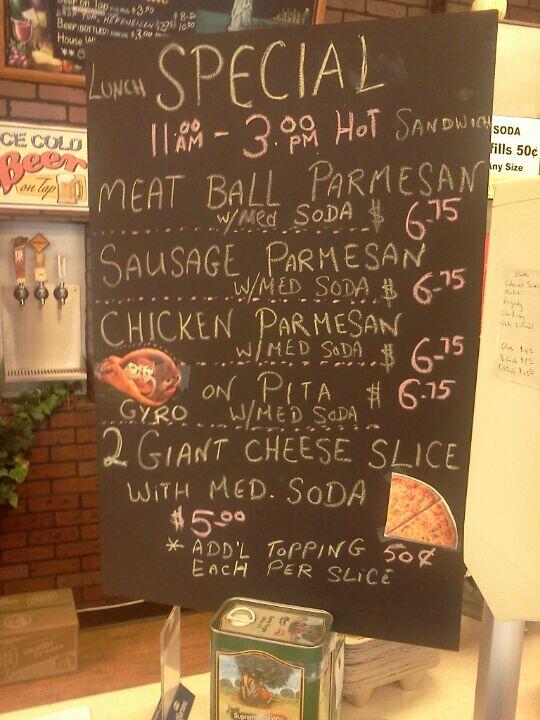 Beer on Tap
House Wi
LUNCH SPECIAL
11 00 AM - 3.00 PM HOT SANDWICH
MEAT BALL PARMESAN
W/MED SODA $ 6.75
SAUSAGE PARMESAN
W/MED SODA $ 6.75
CHICKEN PARMESAN
W/MED SODA $ 6.75
GYRO ON PITA $ 6.75
W/MED SODA
2 GIANT CHEESE SLICE
WITH MED. SODA
$5.00
* ADD'L TOPPING 50¢
EACH PER SLICE
ICE COLD
Beer
on Tap
SODA
fills 50¢
ny Size